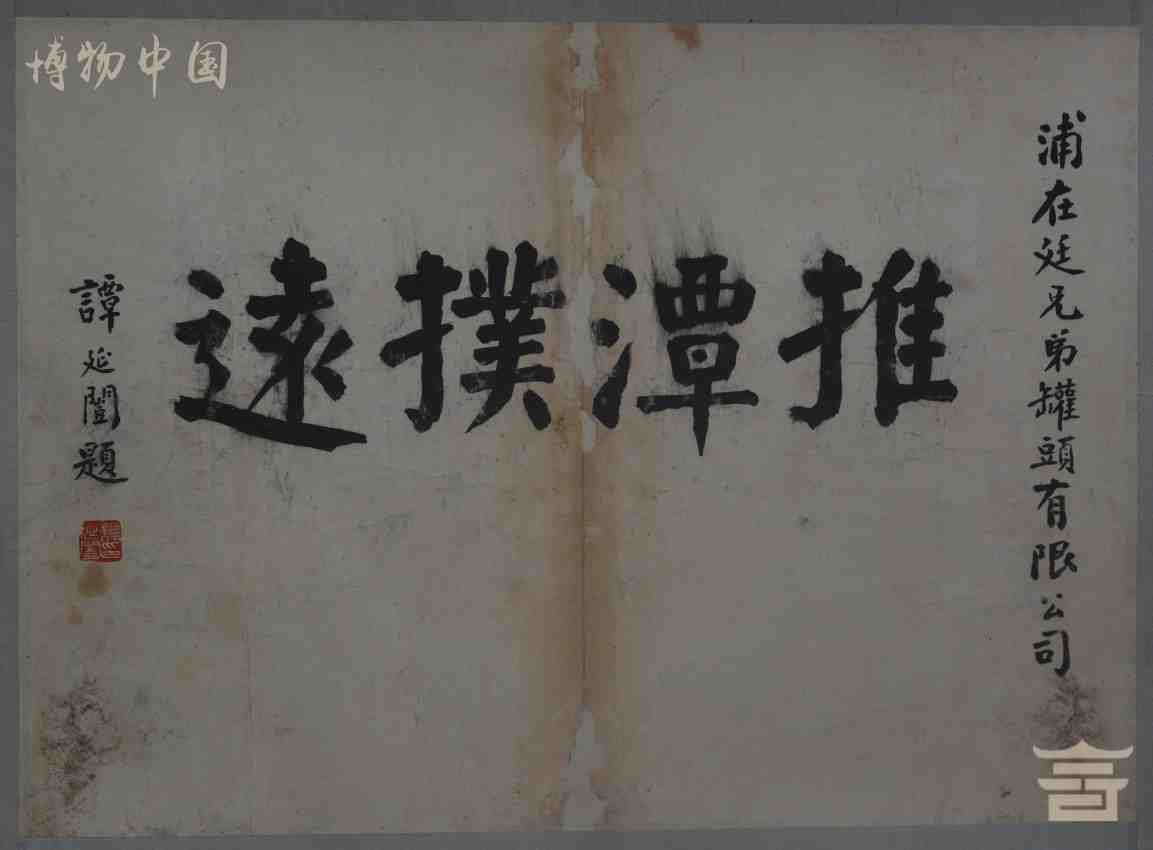 博物中国
浦在廷兄弟罐頭有限公司
推潭撲遠
譚延闓題